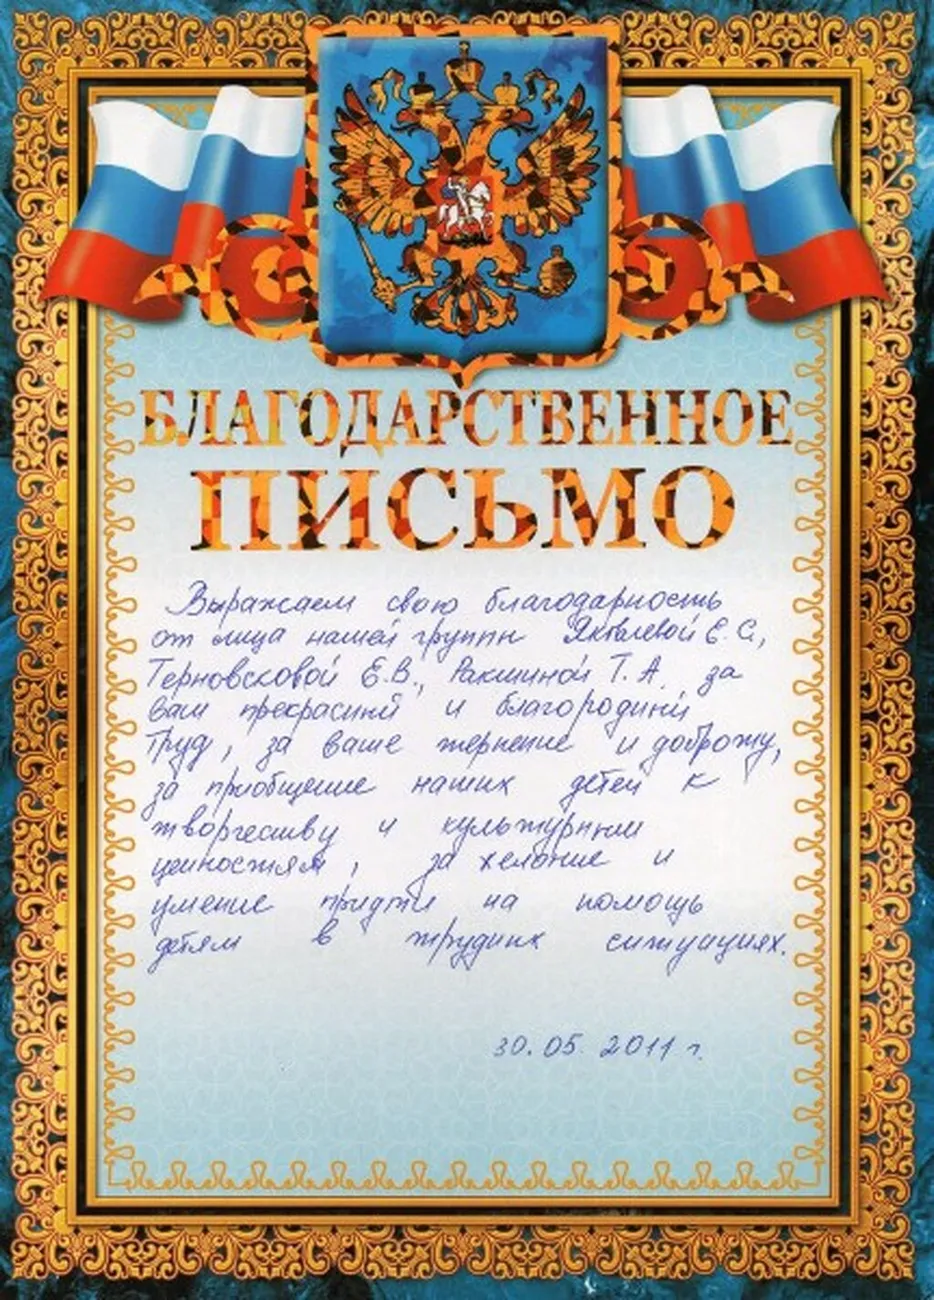 БЛАГОДАРСТВЕННОЕ
ПИСЬМО
Выражаем свою благодарность
от лица нашей группы Яковлевой Е.С.,
Терновсковой Е.В., Ракшиной Т.А. за
ваш прекрасный и благородный
труд, за ваше терпение и доброту,
за приобщение наших детей к
творчеству и культурным
ценностям, за желание и
умение придти на помощь
детям в трудных ситуациях.
30.05.2011 г.